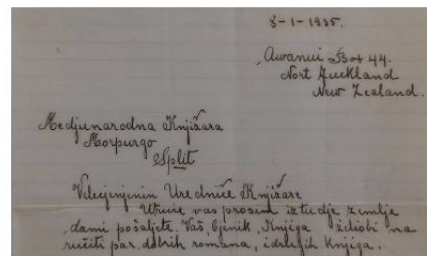 8-1-1935.
Awanui Box 44.
Nort Auckland
New Zealand.
Medjunarodna Knjižara
Morpurgo
Split
Velecjenjenin Uredniče Knjižare
Učtivo vas prosim iz tudje zemlje
dami pošaljete, Vaš, Cjenik, Knjiga želiobi na
ručiti par, dobrih romana, i drugih Knjiga.